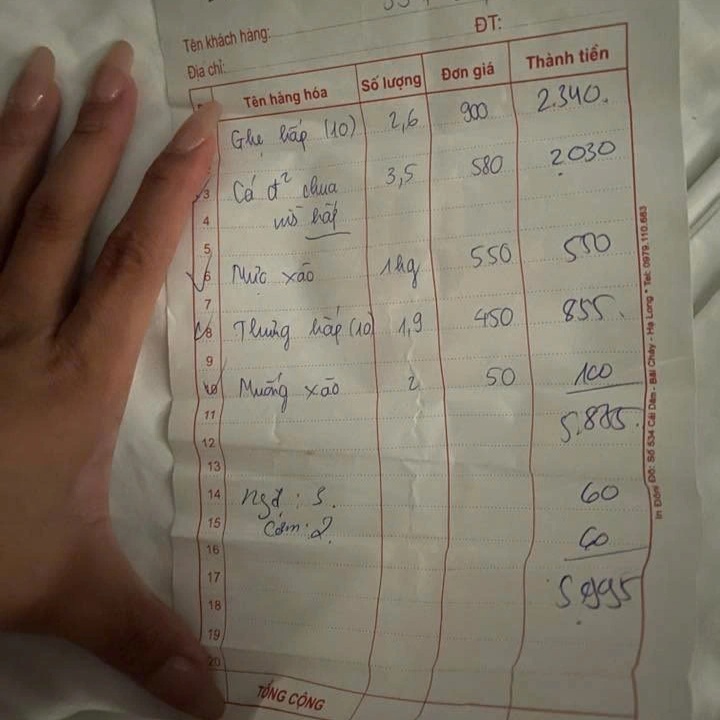 Tên khách hàng:
ĐT:
Địa chỉ:
Tên hàng hóa Số lượng Đơn giá Thành tiền
Ghẹ hấp (10) 2,6 900 2.340.
3 Cá đ² chua 3,5 580 2.030
4 hấp
5
6 Mực xào 1kg 550 550
7
8 hấp (10) 1,9 450 855.
9
10 Muống xào 2 50 100
11 5.875.
12
13
14 Ngđ: 3. 60
15 Cơm: 2. 60
16
17 5.995
18
19
20
TỔNG CỘNG
In Đông Đô: Số 534 Cái Dăm - Bãi Cháy - Hạ Long * Tel: 0979.110.663